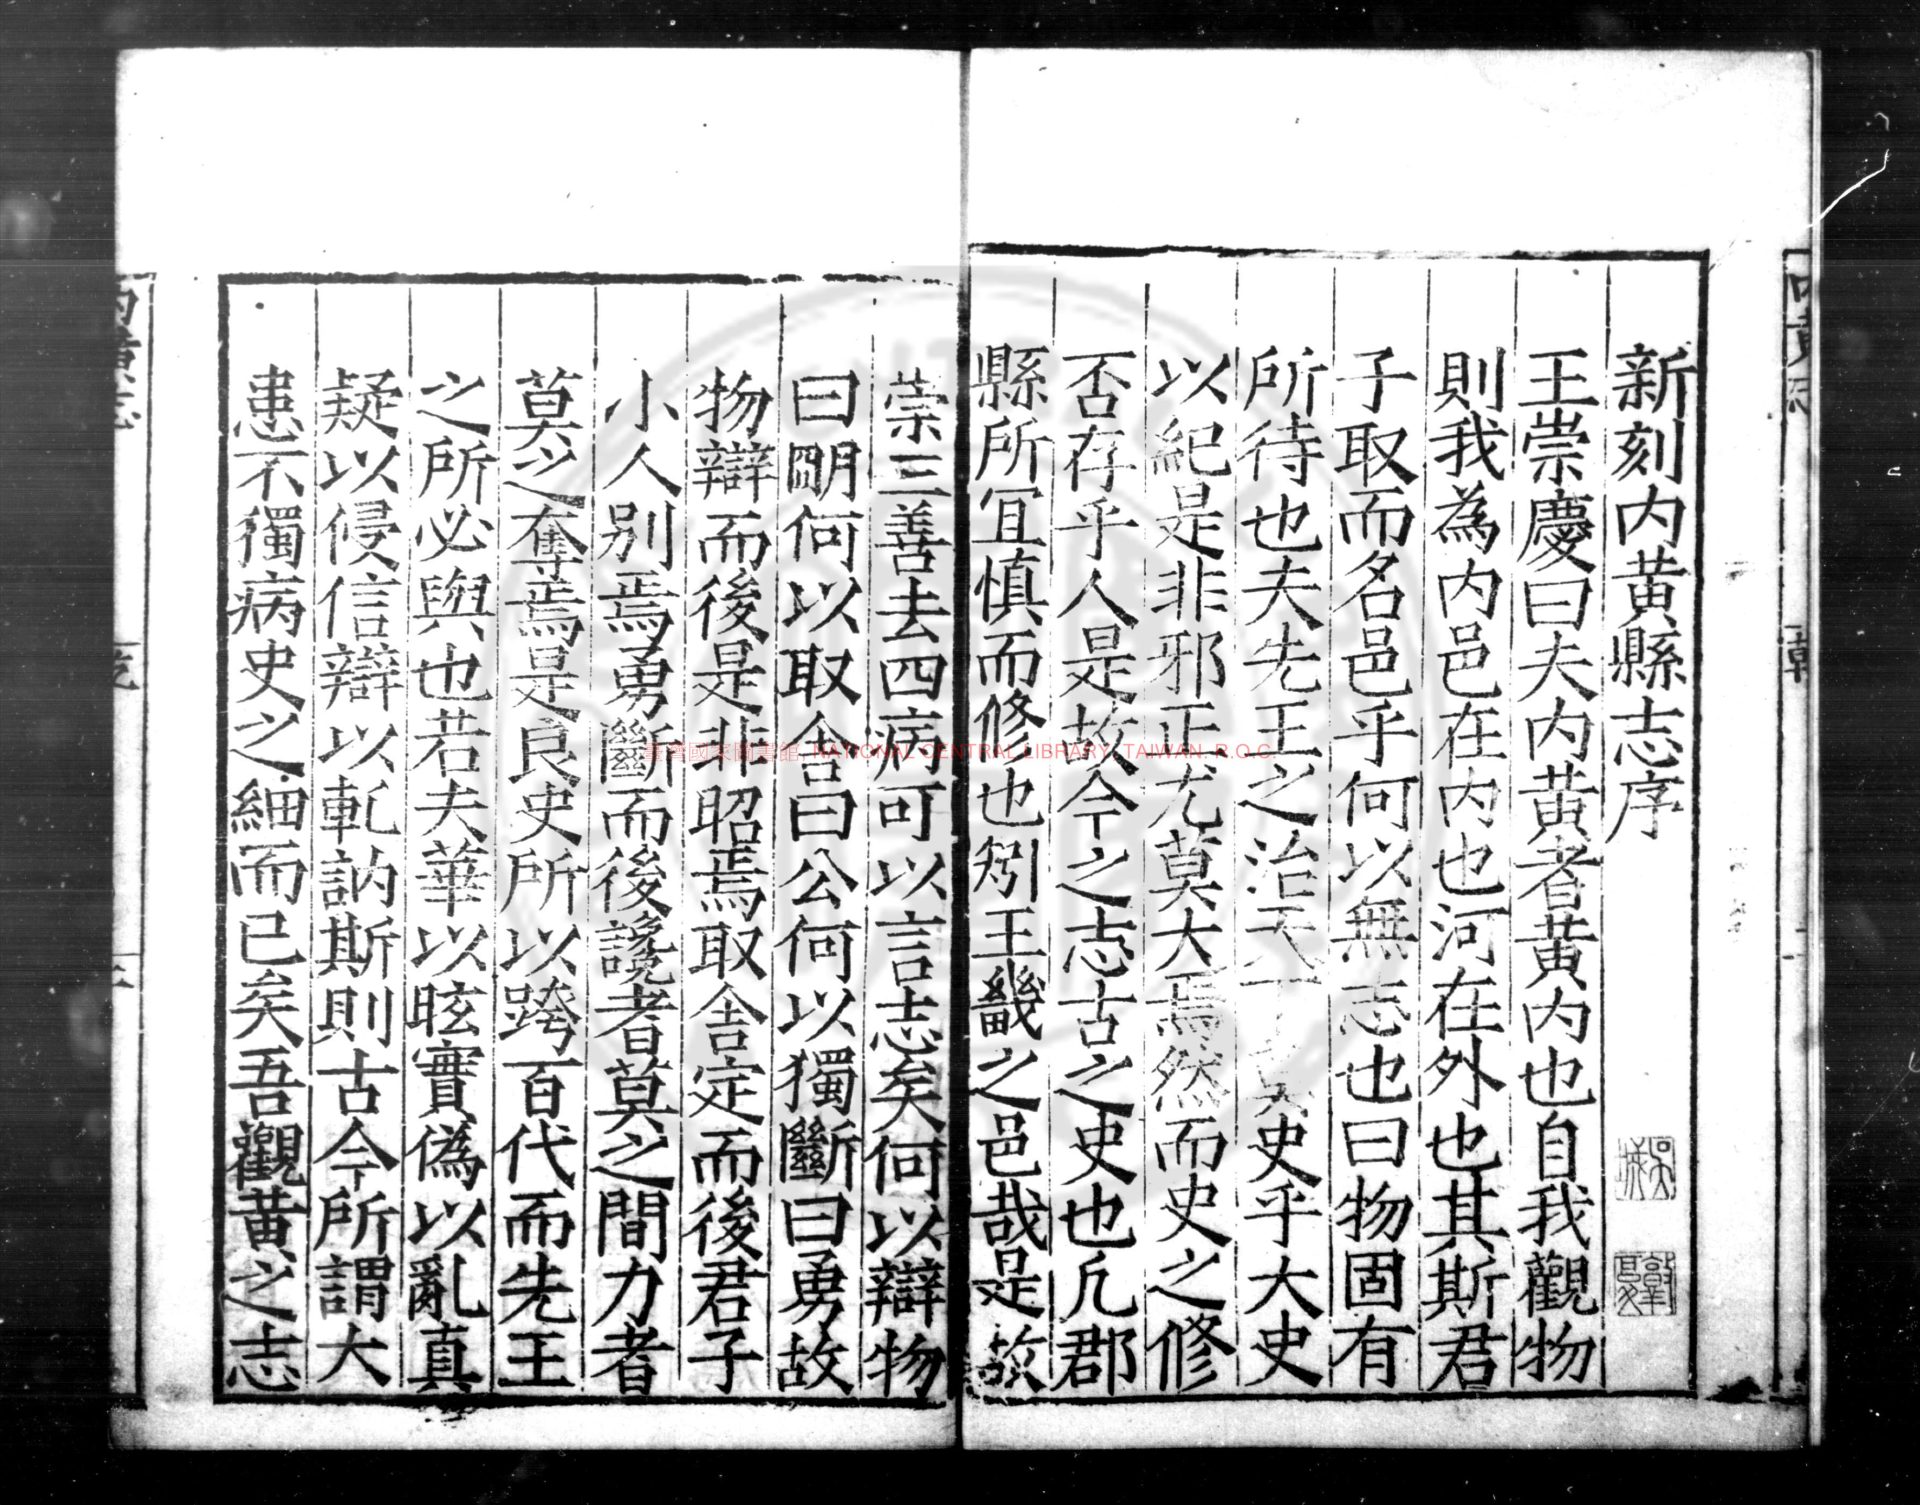 新刻内黃縣志序
王崇慶曰夫内黃者黃内也自我觀物
則我為内邑在内也河在外也其斯君
子取而名邑乎何以無志也曰物固有
所待也夫先王之治天下其史乎大史
以紀是非邪正尤莫大焉然而史之修
否存乎人是故今之志古之史也凡郡
縣所宜慎而修也矧王畿之邑哉是故
崇三善去四病可以言志矣何以辯物
曰明何以取舍曰公何以獨斷曰勇故
物辯而後是非昭焉取舍定而後君子
小人别焉勇斷而後讒者莫之間力者
莫之奪焉是良史所以跨百代而先王
之所必與也若夫華以眩實偽以亂真
疑以侵信辯以軋訥斯則古今所謂大
患不獨病史之細而已矣吾觀黃之志
臺灣國家圖書館, NATIONAL CENTRAL LIBRARY, TAIWAN. R.O.C.